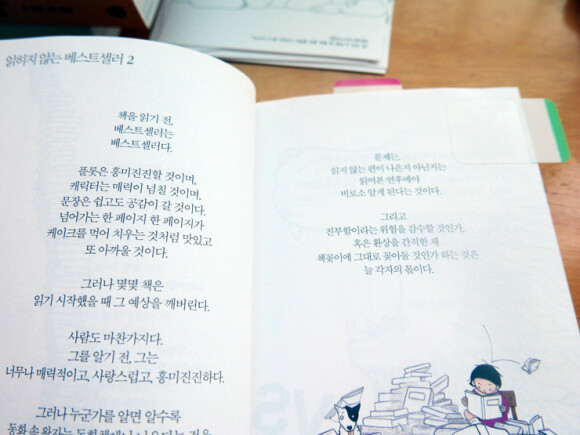 읽히지 않는 베스트셀러 2
책을 읽기 전,
베스트셀러는
베스트셀러다.
플롯은 흥미진진할 것이며,
캐릭터는 매력이 넘칠 것이며,
문장은 쉽고도 공감이 갈 것이다.
넘어가는 한 페이지 한 페이지가
케이크를 먹어 치우는 것처럼 맛있고
또 아까울 것이다.
그러나 몇몇 책은
읽기 시작했을 때 그 예상을 깨버린다.
사람도 마찬가지다.
그를 알기 전, 그는
너무나 매력적이고, 사랑스럽고, 흥미진진하다.
그러나 누군가를 알면 알수록
동화 속 왕자는 동화책에나
문제는,
읽지 않는 편이 나은지 아닌지는
읽어본 연후에야
비로소 알게 된다는 것이다.
그리고
진부함이라는 위험을 감수할 것인가,
혹은 환상을 간직한 채
책꽂이에 그대로 꽂아둘 것인가 하는 것은
늘 각자의 몫이다.